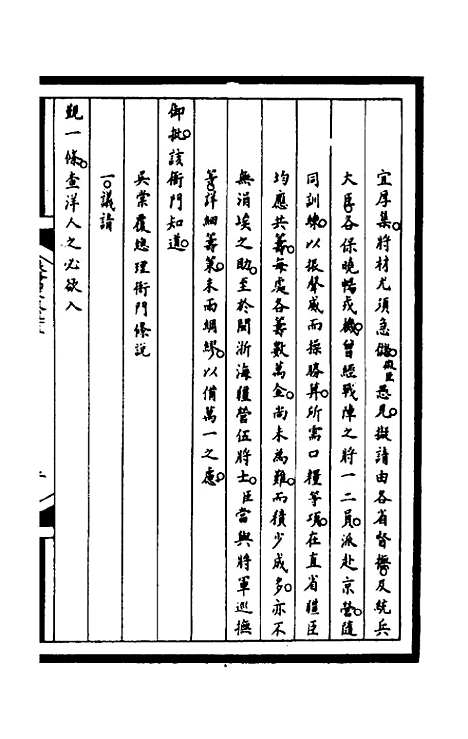 宜厚集將材尤須急儲微臣愚見擬請由各省督撫及統兵
大臣各保曉暢戎機曾經戰陣之將一二員派赴京營隨
同訓練以張聲威而操勝算所需口糧等項在直省疆臣
均應共籌每處各籌數萬金尚未為難而積少成多亦不
無涓埃之助至於閩浙海疆營伍將士臣當與將軍巡撫
等詳細籌策未雨綢繆以備萬一之慮
御批該衙門知道
吳棠覆總理衙門條說
一議請
覲一條查洋人之必欲入